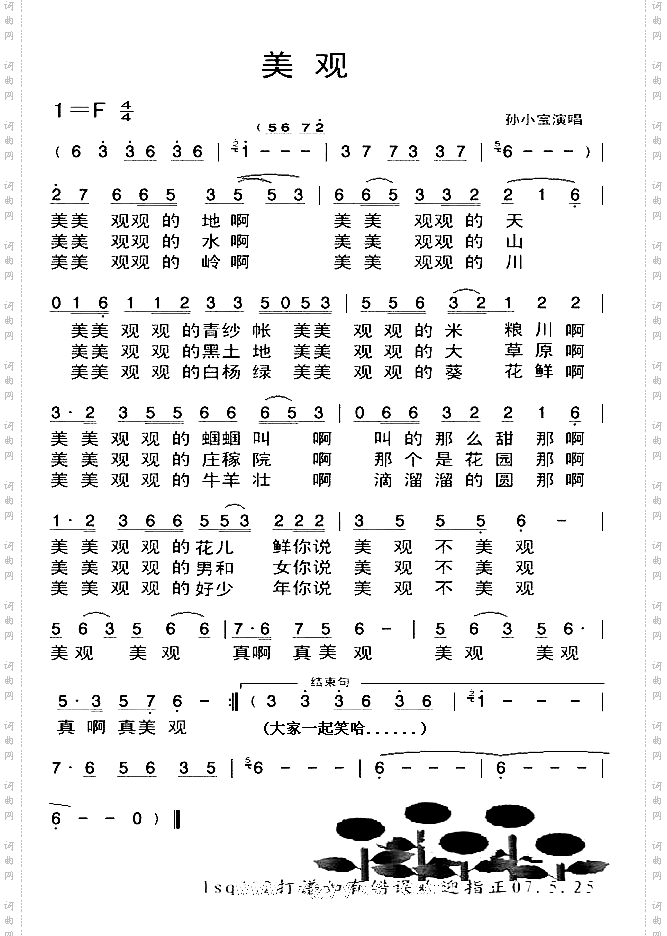 美 观
1=F 4/4
孙小宝演唱
(56 72
(6 3 36 36 | 1 - - - | 37 73 37 | 6 - - -)|
2 7 665 35 53 | 665 332 2 1 6 |
美美 观观 的 地啊 美 美 观观 的 天
美美 观观 的 水啊 美 美 观观 的 山
美美 观观 的 岭啊 美 美 观观 的 川
016 112 33 5053 | 556 32 1 22 |
美美 观 观 的青纱 帐 美美 观 观 的 米 粮 川 啊
美美 观 观 的黑土 地 美美 观 观 的 大 草 原 啊
美美 观 观 的白杨 绿 美美 观 观 的 葵 花 鲜 啊
3·2 355 66 653 | 066 322 2 1 6 |
美 美 观 观 的 蝈蝈 叫 啊 叫 的 那 么 甜 那 啊
美 美 观 观 的 庄稼 院 啊 那 个 是 花 园 那 啊
美 美 观 观 的 牛羊 壮 啊 滴 溜 溜 的 圆 那 啊
1·2 366 553 222 | 3 5 5 5 6 - |
美 美 观 观 的 花儿 鲜你说 美 观 不 美 观
美 美 观 观 的 男和 女你说 美 观 不 美 观
美 美 观 观 的 好少 年你说 美 观 不 美 观
5 63 5 66 | 7·6 75 6 - | 5 63 56· |
美观 美观 真啊 真美 观 美观 美观
结束句
5·3 576 - :‖(3 3 36 36 | 1 - - - |
真 啊 真美 观 (大家一起笑哈......)
7·6 56 35 | 6 - - - | 6 - - - | 6 - - - |
6 - - 0)‖
07.5.25
词曲网